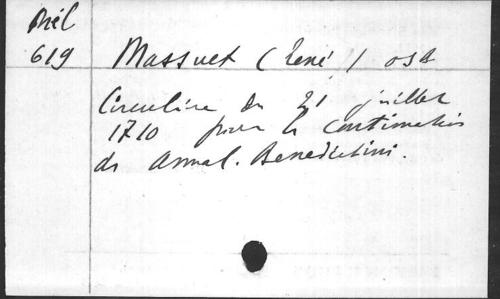 Mél
619
Massuet (René) OSB
Circulaire du 21 juillet
1710 pour la continuation
des Annal. Benedictini.